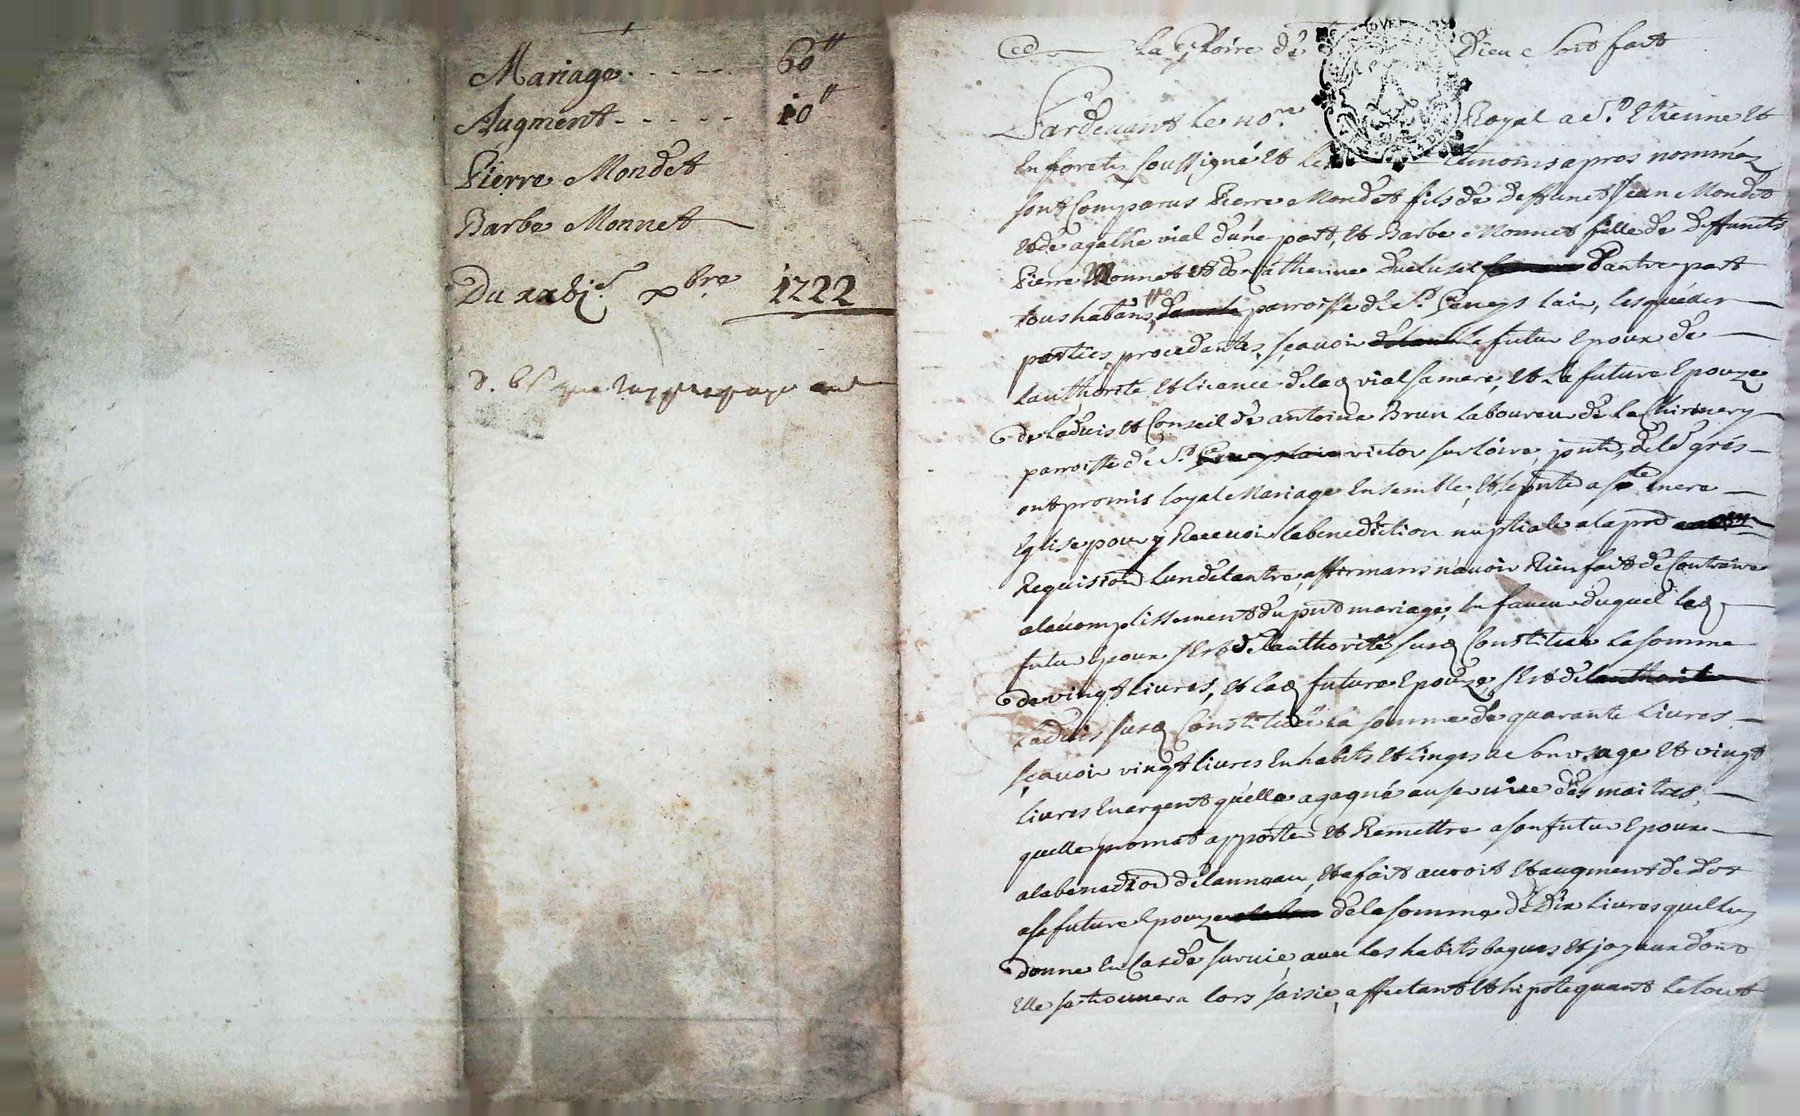 Mariage - - - - - 60 ₶
Augment - - - - - 10 ₶
Pierre Mondet
Barbe Monnet
Du xxbj.e xbre 1722
La Gloire de Dieu Soit fait
Pardevant le nore Royal a St. Etienne Et
En forets soussigné et les temoins apres nommés
sont Comparus Pierre Mondet fils de deffunct Jean Mondet
et de agathe vial d'une part, et Barbe Monnet fille de deffuncts
Pierre Monnet et de Catherine d'autre part
tous habitans parroisse de St. Geneys lair, lesquelles
parties procedantes, sçavoir le futur Epoux de
lauthorité et licance de lad vial sa mere, et la future Epouze
de ladvis et Conseil de antoine Brun laboureur de la
parroisse de St. victor sur loire, de leur grés
ont promis loyal Mariage Ensemble, et a ste mere
Eglise pour y Recevoir la benediction nuptialle a la pre
Requisition lun de lautre, affirmans n'avoir Rien fait de Contraire
alacomplissement du pnt mariage, En faveur duquel led
futur Epoux sest de lauthorité susd Constitué la somme
de vingt livres, et lad future Epouze sest de
ladvis susd Constitué la somme de quarante livres
sçavoir vingt livres En habits et linges a son usage et vingt
livres En argent quelle a gagné au service des maitres,
quelle promet apporter et Remettre a son futur Epoux
a la benedion de lanneau, et a fait auroit et augment de dot
a sa future Epouze de la somme de dix livres quil luy
donne En Cas de survie, avec les habits bagues et joyaux dont
Elle se trouvera lors saisie, affectant et hipotequant le tout